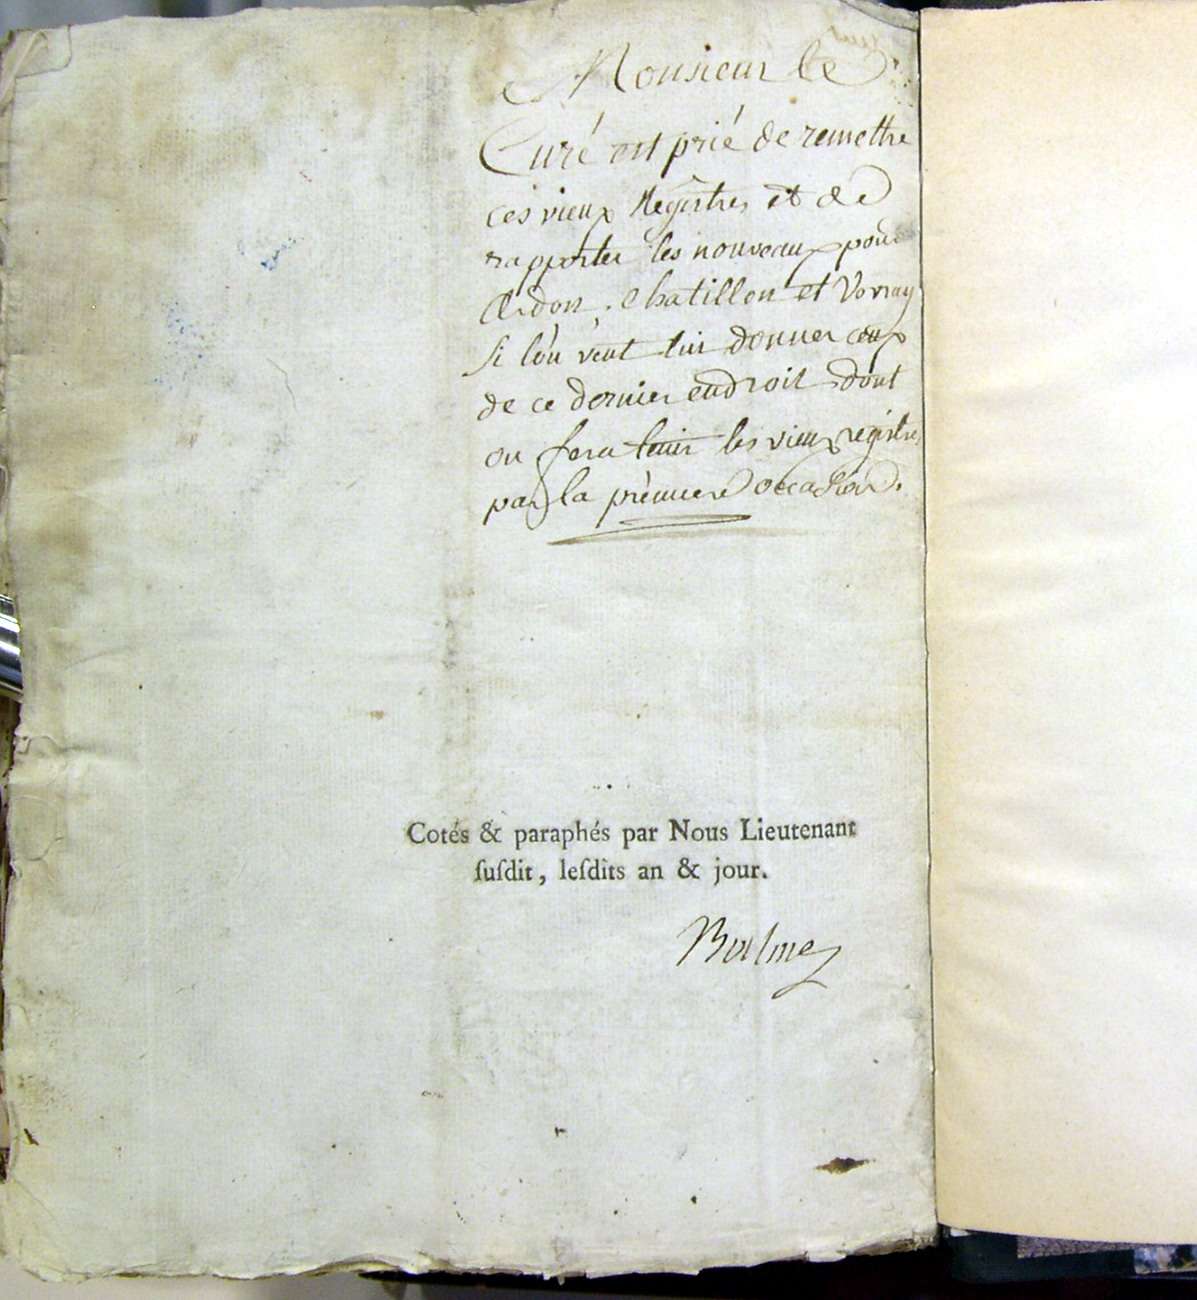 Monsieur le
Curé est prié de remettre
ces vieux Régistres et de
rapporter les nouveaux pour
Cerdon, Chatillon et Vovray
si l'on veut lui donner ceux
de ce dernier endroit dont
on fera tenir les vieux registres
par la prèmiere occasion.
Cotés & paraphés par Nous Lieutenant
ſuſdit, leſdits an & jour.
Balme